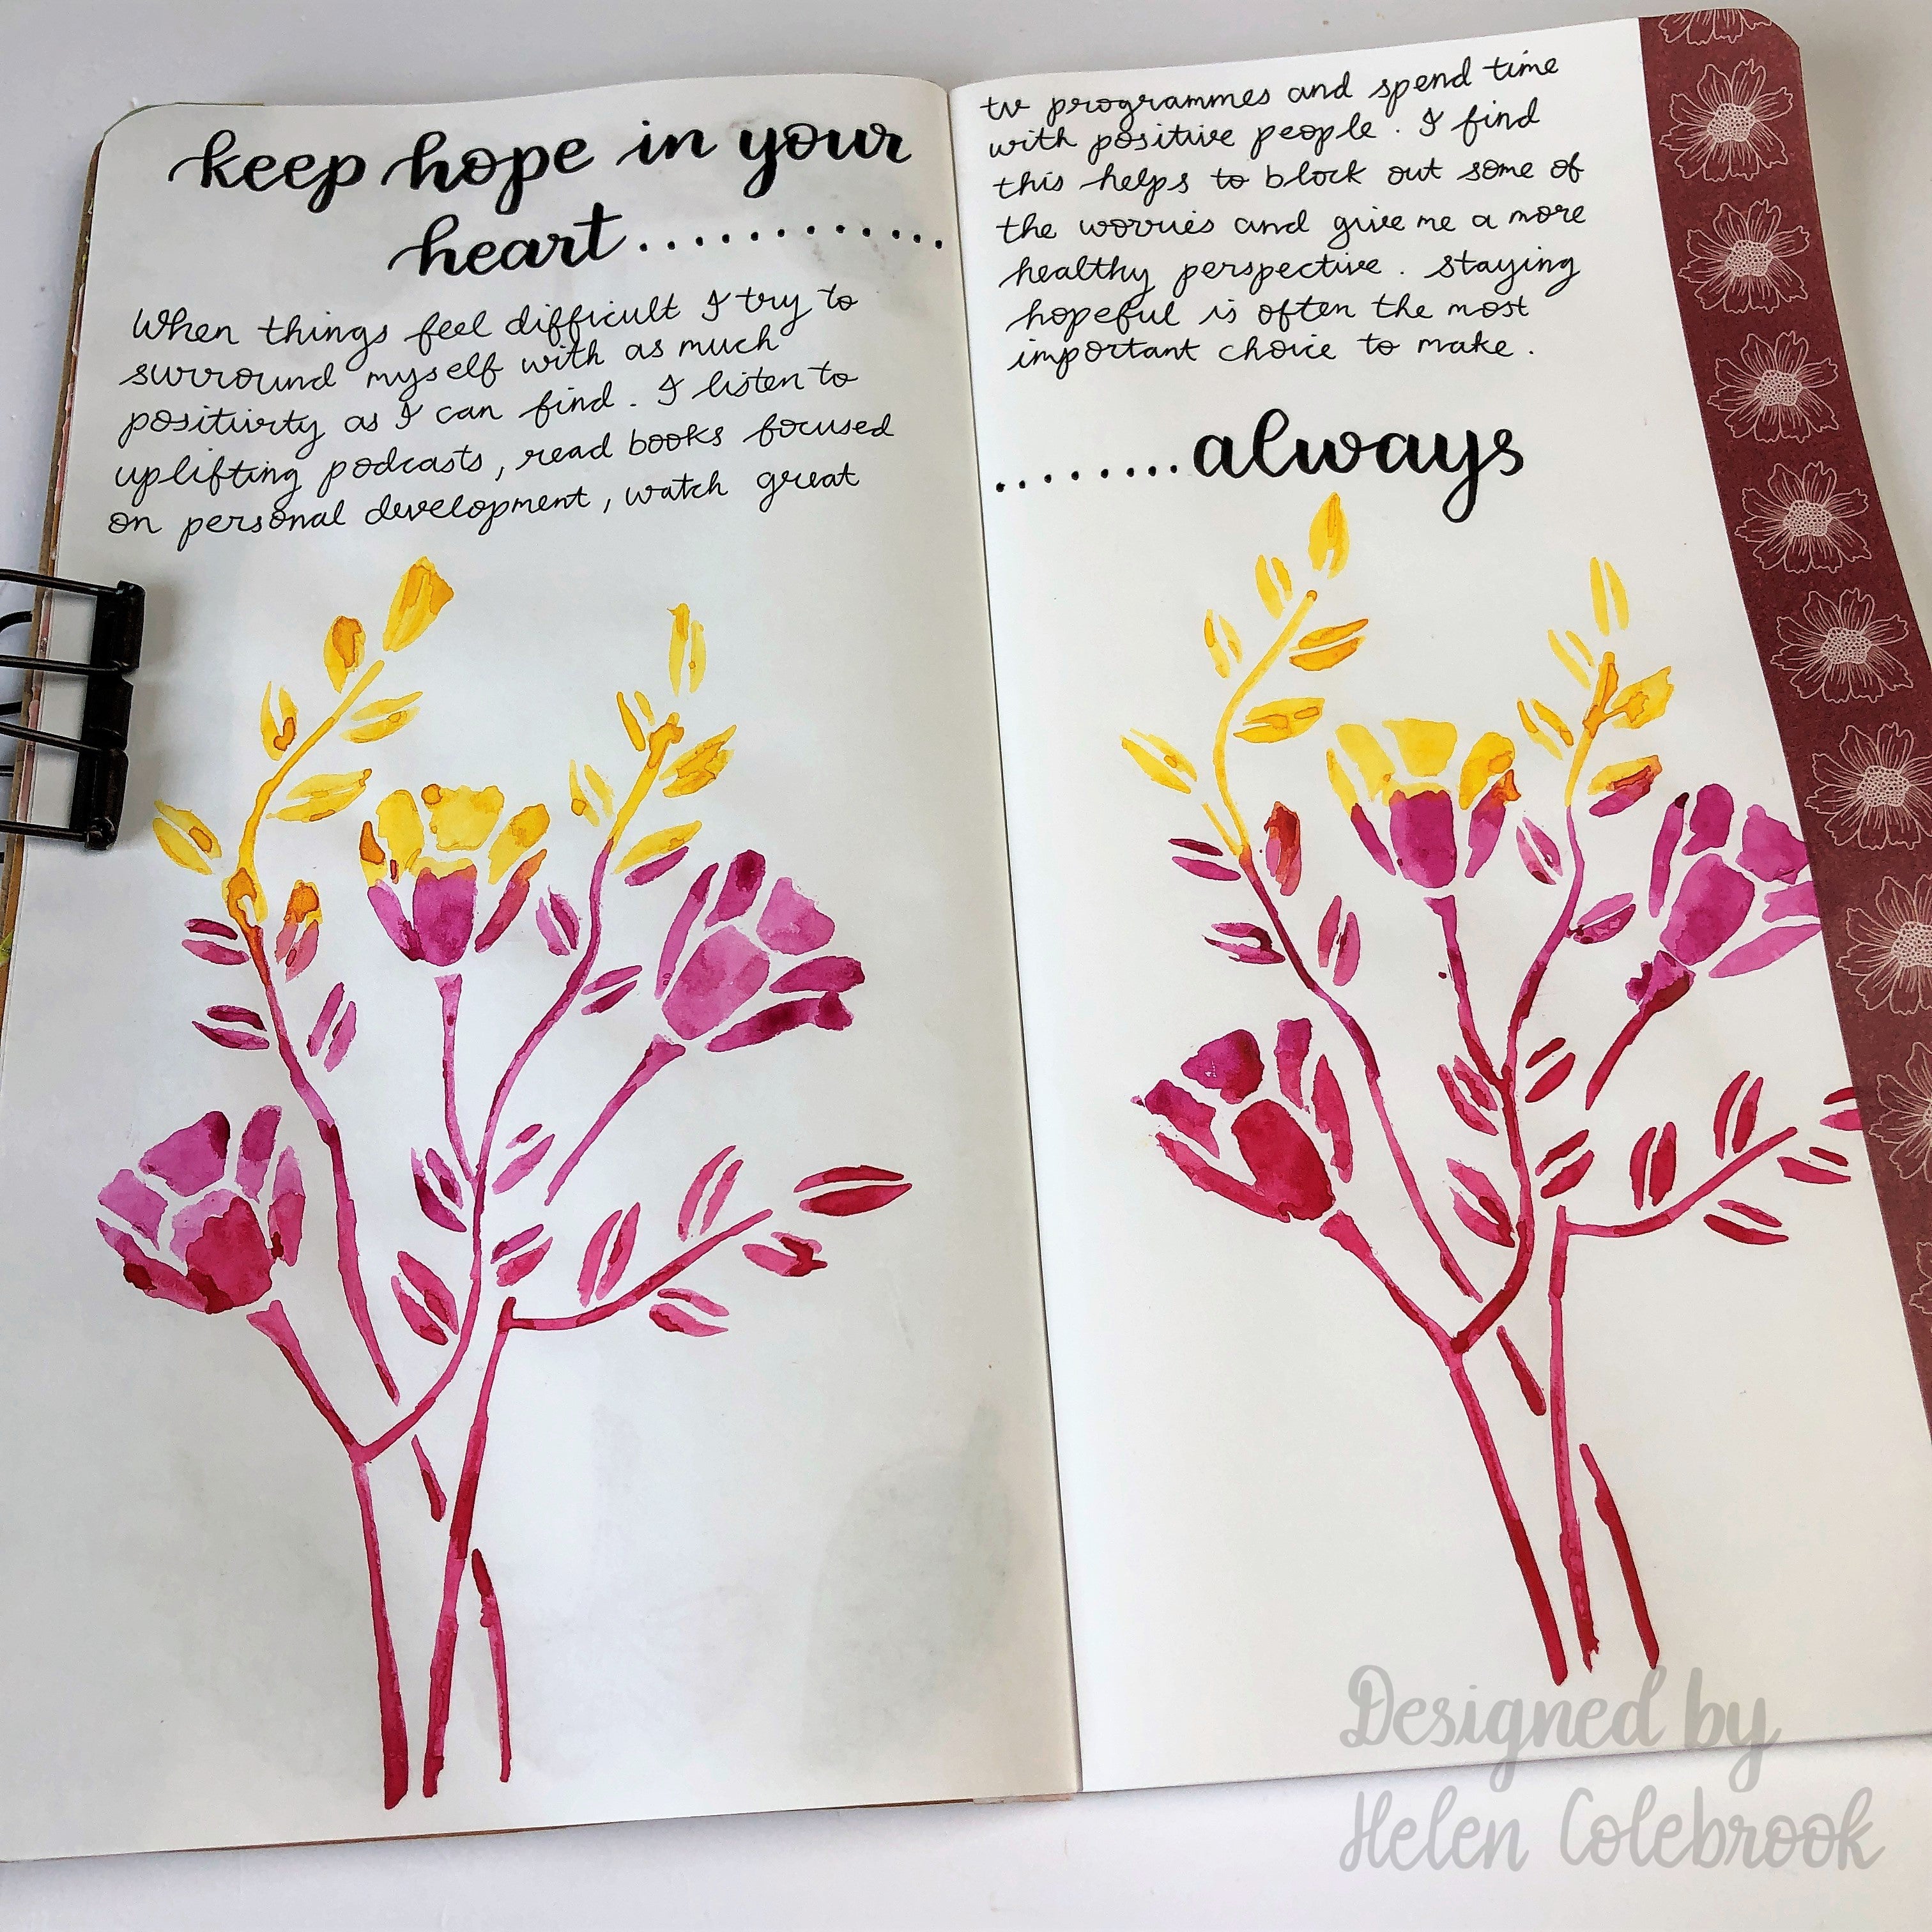 keep hope in your
heart.............
When things feel difficult I try to
surround myself with as much
positivity as I can find. I listen to
uplifting podcasts, read books focused
on personal development, watch great
tv programmes and spend time
with positive people. I find
this helps to block out some of
the worries and give me a more
healthy perspective. Staying
hopeful is often the most
important choice to make.
........always
Designed by
Helen Colebrook